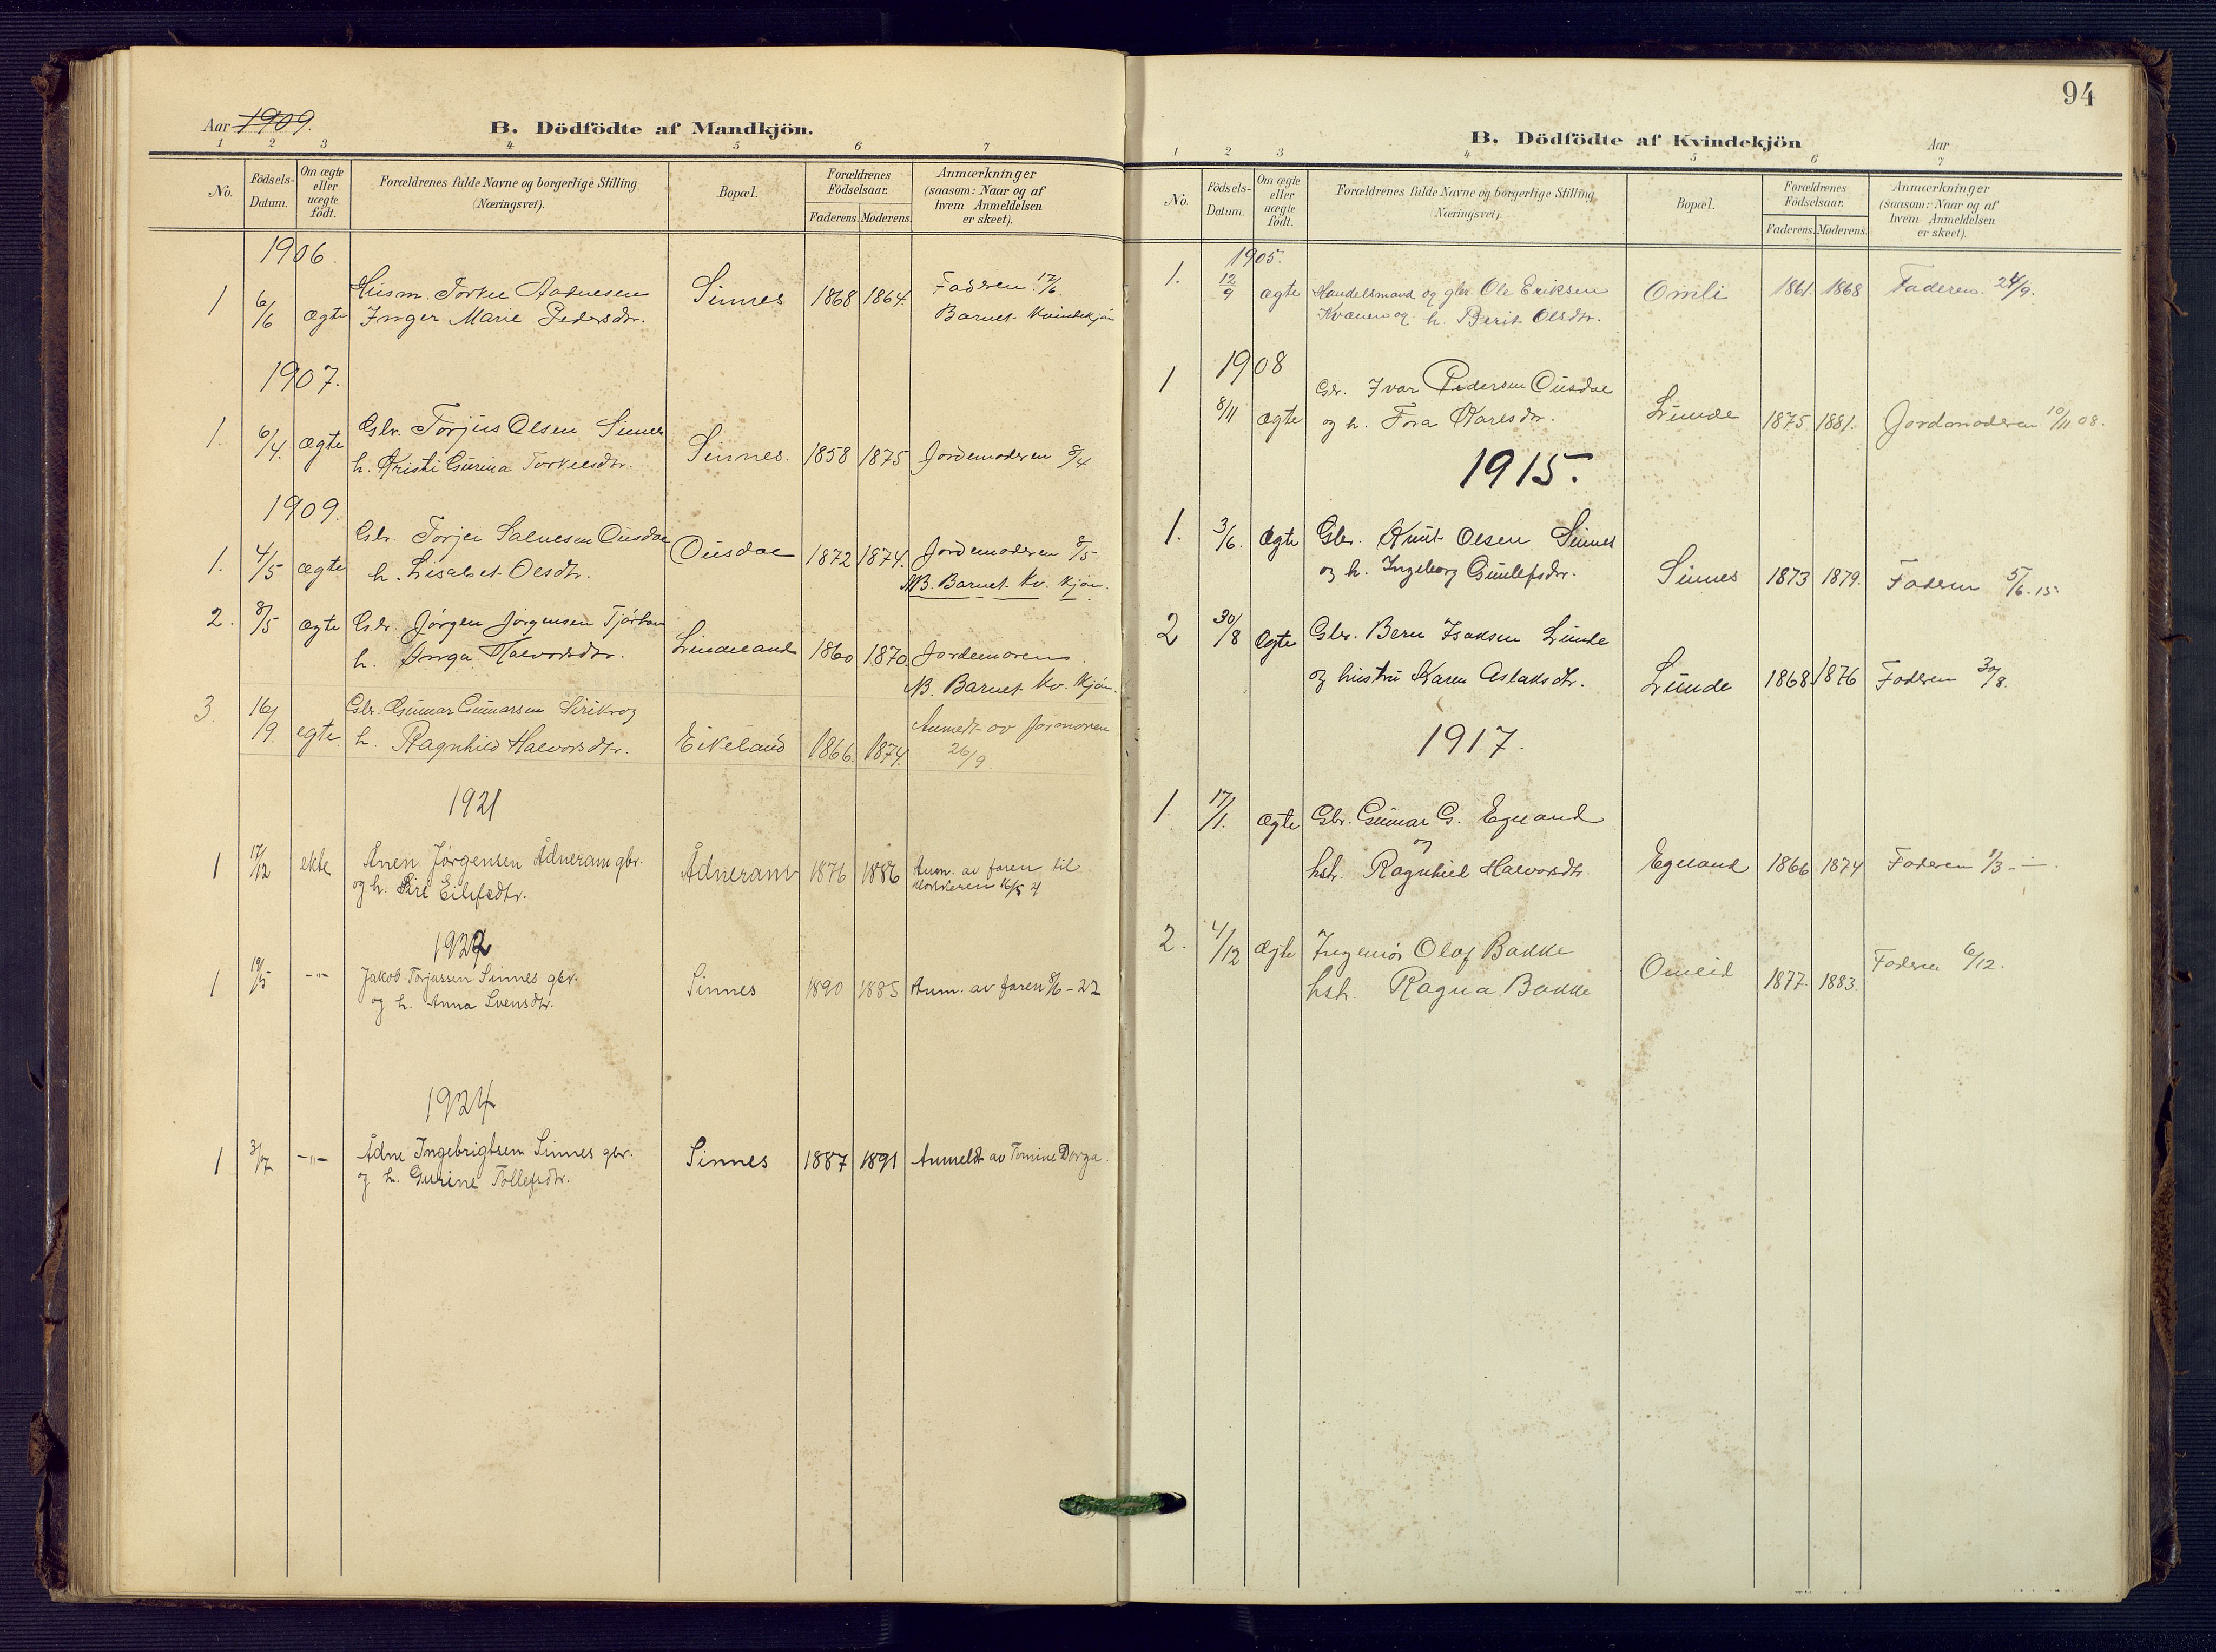 94
Aar 1909.
B. Dödfödte af Mandkjön.
1 2 3 4 5 6 7
No. Födsels-Datum. Om ægte eller uægte födt. Forældrenes fulde Navne og borgerlige Stilling (Næringsvei). Bopæl. Forældrenes Födselsaar. Faderens. Moderens. Anmærkninger (saasom: Naar og af hvem Anmeldelsen er skeet).
1906.
1 6/6 ægte Husm. Torkel Aadnesen Sinnes 1868 1864. Faderen 17/6
Inger Marie Pedersdtr. Barnet Kvindekjön
1907.
1. 6/4. ægte Gbr. Torjus Olsen Sinnes Sinnes. 1858 1875 Jordemoderen 8/4
h. Kristi Gurina Torkelsdtr.
1909.
1. 4/5 ægte Gbr. Torjei Salvesen Ousdal Ousdal 1872 1874. Jordemoderen 8/5
h. Lisabet Olsdtr. NB. Barnet Kv. kjön.
2. 8/5 ægte Gbr. Jørgen Jørgensen Lindeland 1860 1870. Jordemoren.
h. Inga Halvorsdtr. NB. Barnet Kv. Kjön.
3. 16/9. egte. Gbr. Gunnar Gunarsen Eikeland 1866. 1874. Anmeldt av Jormoren
h. Ragnhild Halvorsdtr. 26/9.
1921
1 17/12 ekte Ånen Jørgensen Ådneram gbr. Ådneram 1876 1886 Anm. av faren til
og h. Siri Eilefsdtr. klokkeren
1922
1 19/5 -"- Jakob Torjussen Sinnes gbr. Sinnes 1890 1885 Anm. av faren 8/6-22
og h. Anna Svensdtr.
1924
1 3/7 -"- Ådne Ingebrigtsen Sinnes gbr. Sinnes 1887 1891 Anmeldt av Tomine Dorga.
og h. Gurine Tollefsdtr.
B. Dödfödte af Kvindekjön
Aar
1 2 3 4 5 6 7
No. Födsels-Datum. Om ægte eller uægte födt. Forældrenes fulde Navne og borgerlige Stilling (Næringsvei). Bopæl. Forældrenes Födselsaar. Faderens. Moderens. Anmærkninger (saasom: Naar og af hvem Anmeldelsen er skeet).
1905.
1. 12/9 ægte Handelsmand og gbr. Ole Eriksen Omli 1861. 1868 Faderen. 24/9.
Kvanen og h. Berit Olsdtr.
1908
1 8/11 ægte Gbr. Ivar Pedersen Ousdal
og h. Tora Karlsdtr. Lunde 1875 1881. Jordmoderen 10/11 08.
1915.
1. 3/6. Ægte Gbr. Knut Olsen Sinnes
og h. Ingeborg Gunlefsdtr. Sinnes 1873 1879. Faderen 5/6.15
2 30/8 Ægte Gbr. Bern Isaksen Lunde
og hustru Karen Aslaksdtr. Lunde 1868 1876 Faderen 30/8.
1917.
1. 17/1. Ægte Gbr. Gunnar G. Egeland
og
hstr. Ragnhild Halvorsdtr. Egeland 1866 1874 Faderen 1/3 -
2. 4/12 Ægte Ingeniør Olaf Bakke Omlid 1877. 1883. Faderen 6/12.
hstr. Ragna Bakke